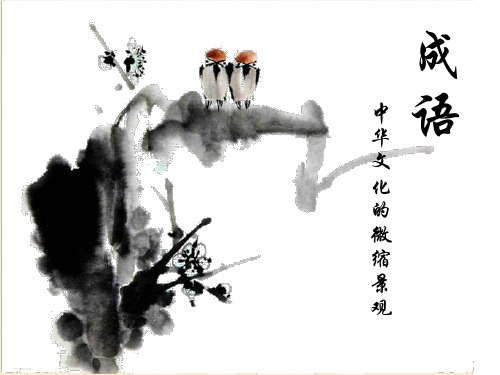 成语
中华文化的微缩景观